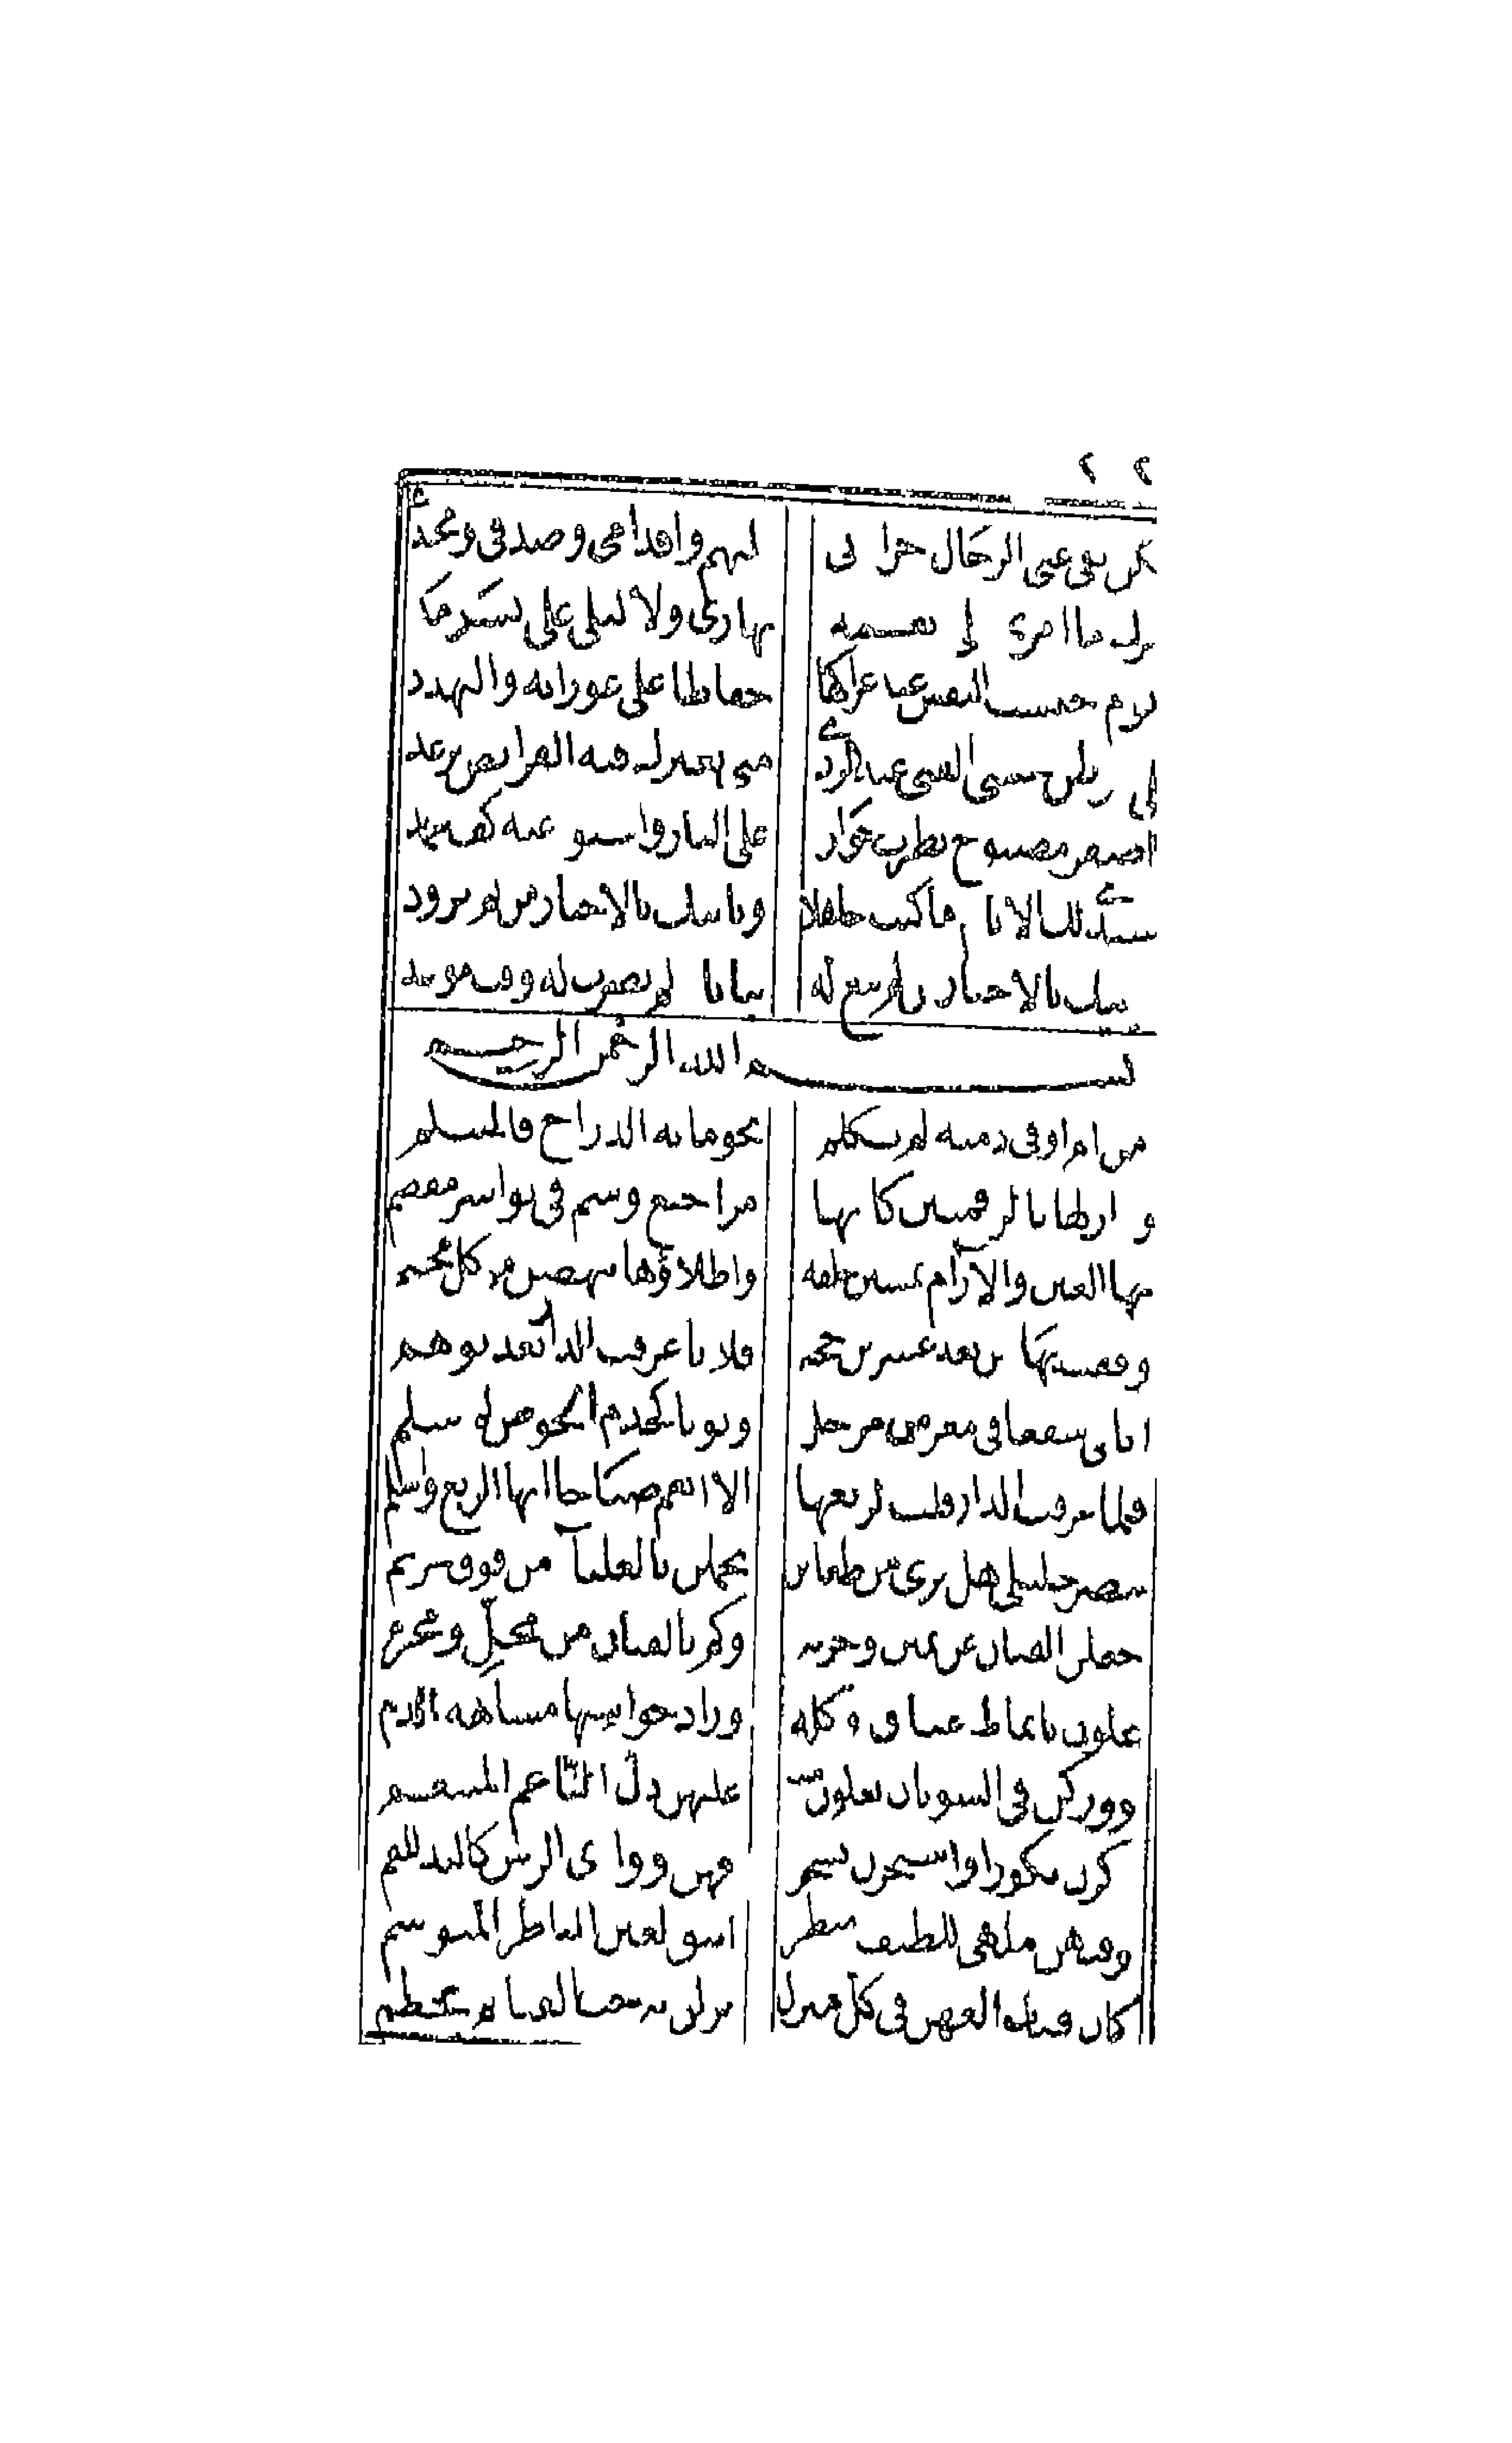 ٢٢
لكن نفى عني الرجال جراتي عليهم واقدامي وصدقي ومحتدي
لعمرك ما امري علي بغمه نهاري ولا ليلي علي بسرمد
ويوم حبست النفس عند عراكها حفاظا على عوراته والتهدد
على موطن يخشى الفتى عنده الردى متى تعترك فيه الفرايص ترعد
واصفر مضبوح نظرت حواره على النار واستودعته كف مجمد
ستبدي لك الايام ما كنت جاهلا وياتيك بالاخبار من لم تزود
وياتيك بالاخبار من لم تبع له بتاتا ولم تضرب له وقت موعد
بسم الله الرحمن الرحيم
امن ام اوفى دمنه لم تكلم بحومانه الدراج فالمتثلم
ودار لها بالرقمتين كانها مراجيع وشم في نواشر معصم
بها العين والآرام يمشين خلفه واطلاؤها ينهضن من كل مجثم
وقفت بها من بعد عشرين حجه فلايا عرفت الدار بعد توهم
اثافي سفعا في معرس مرجل ونويا كجذم الحوض لم يتثلم
فلما عرفت الدار قلت لربعها الا انعم صباحا ايها الربع واسلم
تبصر خليلي هل ترى من ظعاين تحملن بالعلياء من فوق جرثم
جعلن القنان عن يمين وحزنه وكم بالقنان من محلّ ومحرم
علون بانماط عتاق وكله وراد حواشيها مشاكهه الدم
ووركن في السوبان يعلون متنه عليهن دلّ الناعم المتنعم
بكرن بكورا واستحرن بسحر فهن ووادي الرس كاليد للفم
وفيهن ملهى للطيف ومنظر انيق لعين الناظر المتوسم
كان فتات العهن في كل منزل نزلن به حب الفنا لم يحطم